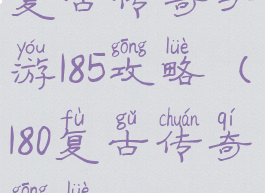 复古传奇手
yóu gōng lüè
游185攻略（
fù gǔ chuán qí
180复古传奇
gōng lüè